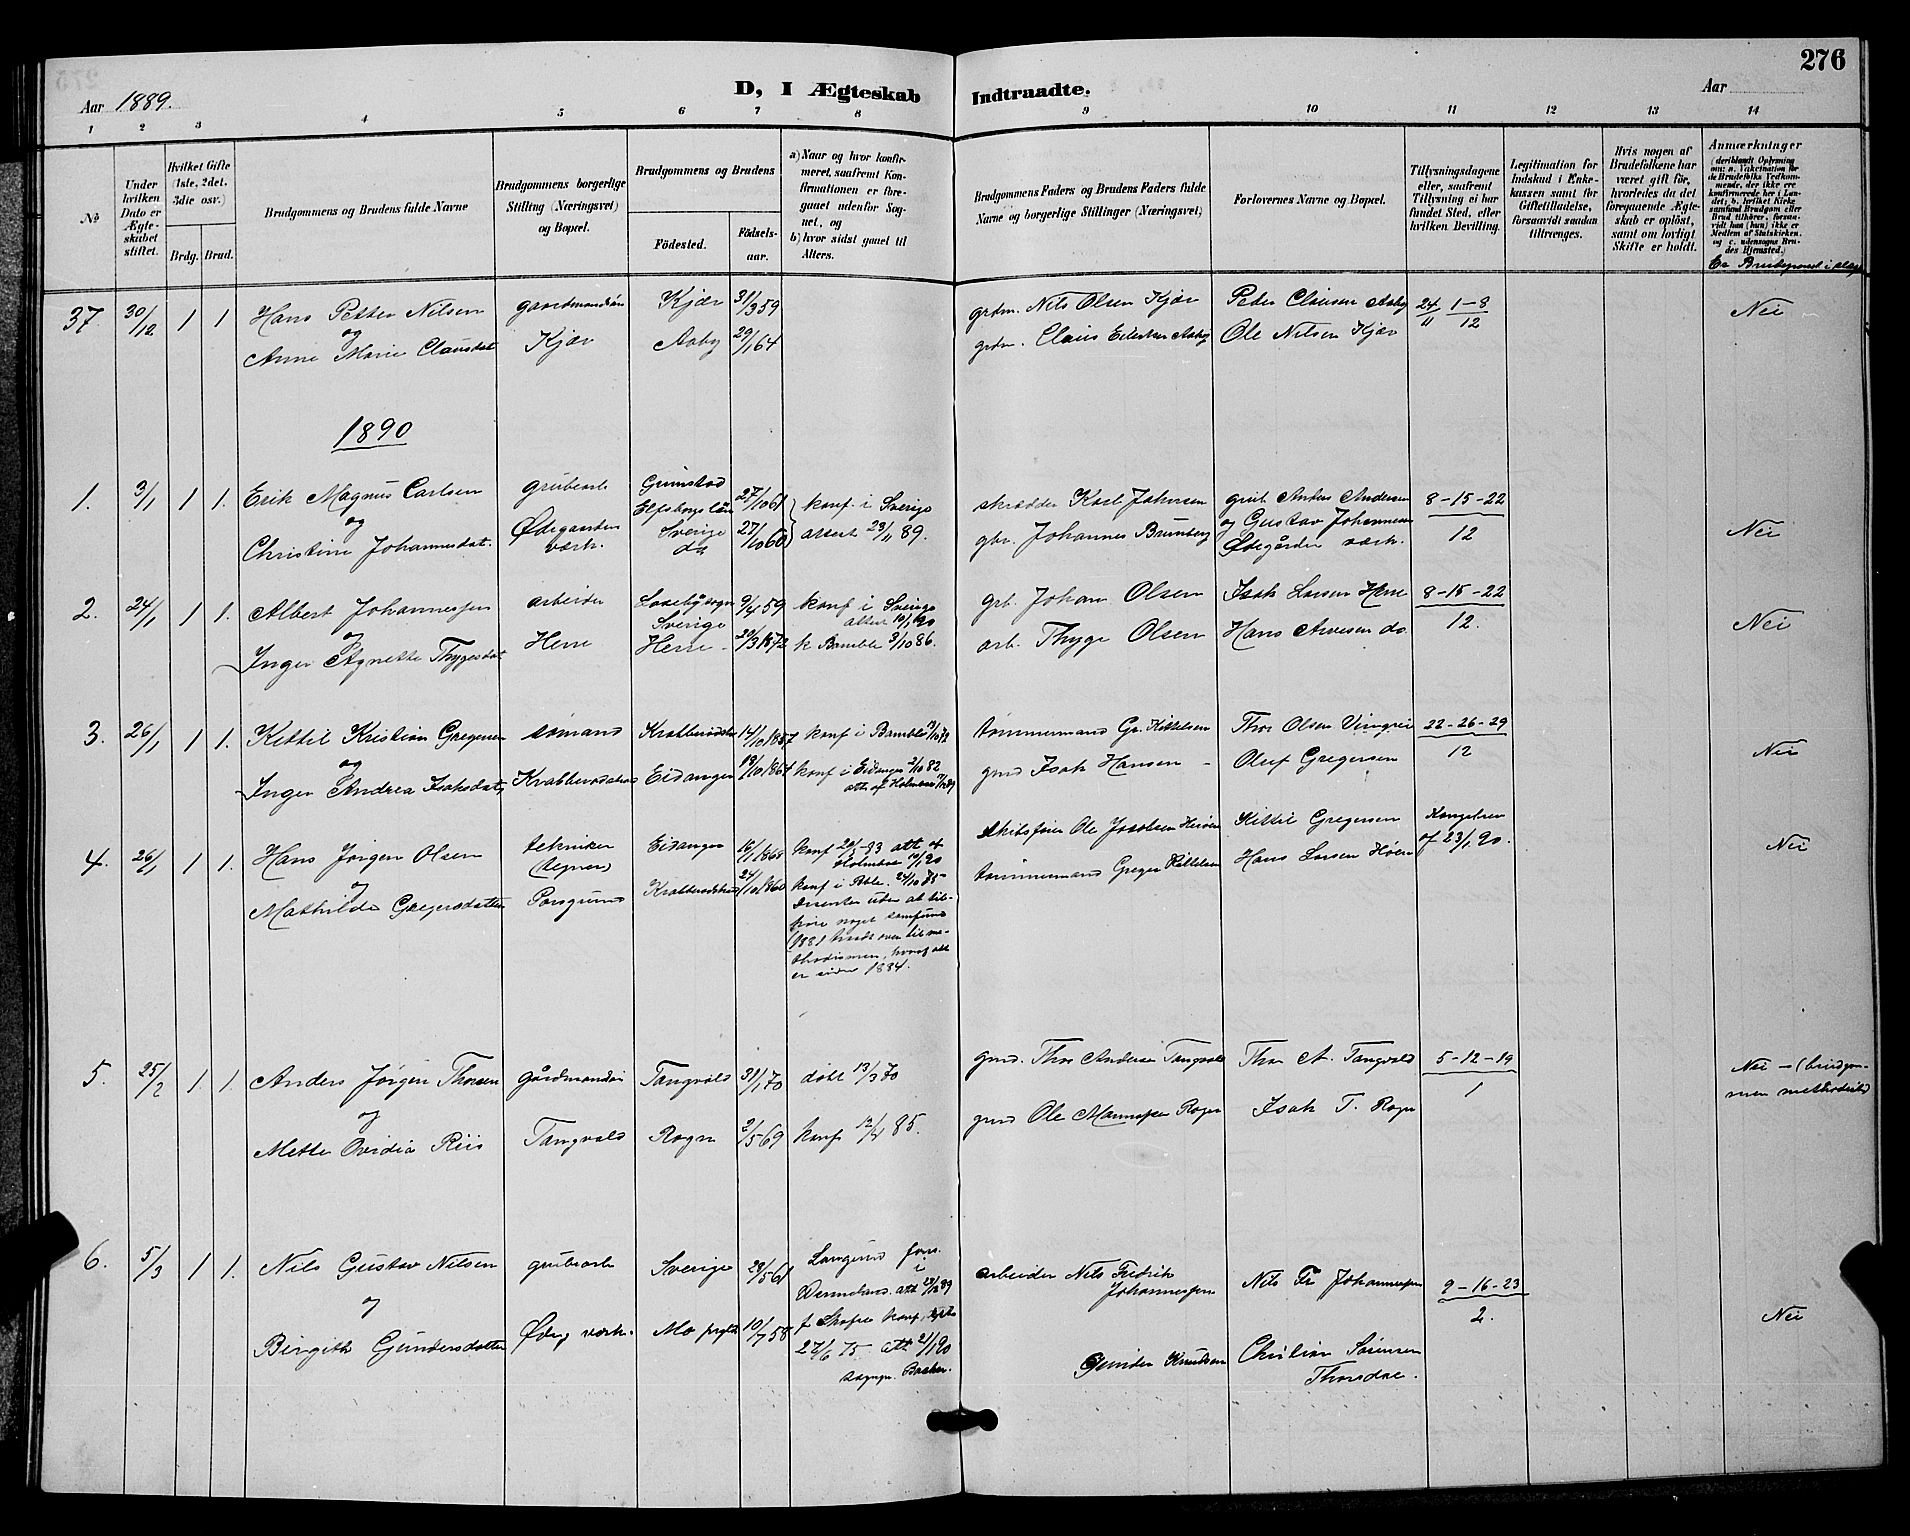 276
Aar 1889.
D, I Ægteskab Indtraadte.
Aar
1 2 3 4 5 6 7 8 9 10 11 12 13 14
№
Under hvilken Dato er Ægteskabet stiftet.
Hvilket Gifte (1ste, 2det, 3die osv.)
Brdg. Brud.
Brudgommens og Brudens fulde Navne
Brudgommens borgerlige Stilling (Næringsvei) og Bopæl.
Brudgommens og Brudens
Fødested.
Fødselsaar.
a) Naar og hvor konfirmeret, saafremt Konfirmationen er foregaaet udenfor Sognet, og
b) hvor sidst gaaet til Alters.
Brudgommens Faders og Brudens Faders fulde Navne og borgerlige Stillinger (Næringsvei)
Forlovernes Navne og Bopæl.
Tillysningsdagene eller, saafremt Tillysning ei har fundet Sted, efter hvilken Bevilling.
Legitimation for Indskud i Enkekassen samt for Giftetilladelse, forsaavidt saadan tiltrænges.
Hvis nogen af Brudefolkene har været gift før, hvorledes da det foregaaende Ægteskab er opløst, samt om lovligt Skifte er holdt.
Anmærkninger (deriblandt Oplysning om: a. Vakcination for de Brudefolks Vedkommende, der ikke ere konfirmerede her i Landet; b. hvilket Kirkesamfund Brudgom eller Brud tilhører, forsaavidt han (hun) ikke er Medlem af Statskirken, og c. udensogns Brudes Hjemsted.
37. 30/12 1 1 Hans Petter Nilsen gaardmandssøn Kjær 31/3 59 grdm. Nils Olsen Kjær Peder Clausen Aaby 24/11 1-8/12 Nei
og
Anne Marie Clausdat. Kjær Aaby 29/1 64 grdm. Claus Eilertsen Aaby Ole Nilsen Kjær
1890
1. 3/1 1 1. Erik Magnus Carlsen grubearb Grimstad 27/10 61 konf. i Sverige skrædder Karl Johnsen grub. Anders Andersen 8-15-22
og Ødegaarden Elfsborgs län og Gustav Johannesen
Christine Johannesdat. værk. Sverige 27/10 60 attest 23/11 89. gbr. Johannes Brunberg Ødegården værk. 12 Nei
do
2. 24/1 1 1. Albert Johannesen arbeider 9/4 59 konf i Sverige grb. Johan Olsen Isak Larsen Herre 8-15-22
og Sverige attest 10/1 90 12. Nei
Inger Agnette Thygesdat Herre Herre 29/3 1872 k Bamble 3/10 86. arb. Thyge Olsen Hans Arvesen do.
3. 26/1 1 1. Kittil Kristian Gregersen sømand Krabberødstr 14/10 1857 konf i Bamble 13/10 72 tømmermand Gr. Kittelsen Thor Olsen 22-26-29
og 12 Nei
Inger Andrea Isaksdat. Krabberødstrand Eidanger 18/10 1864 konf i Eidanger 2/10 82 gmd Isak Hansen Oluf Gregersen
att. af Holmboe
4. 26/1 1 1. Hans Jørgen Olsen tekniker Eidanger 16/1 1868 konf 20/5-83 att af Holmboe 10/1 90 skibsfører Ole Jacobsen Kittil Gregersen Kongebrev Nei
og (tegner) af 23/1 90.
Mathilde Gregersdatter Porsgrund Krabberødstrand 24/10 1860 konf i Bble. 24/10 75 tømmermand Greger Kittelsen Hans Larsen
Dissenter uden at tilhøre noget samfund
1881 traadt over til methodismen, hvoraf att
er siden 1884.
5. 25/2 1 1. Anders Jørgen Thorsen gårdmandssøn Tangvald 31/1 70 døbt 13/3 70 gmd. Thor Andersen Tangvald Thor A. Tangvald 5-12-19 Nei - (brudgommen methodist)
og 1
Mette Ovidia Riis Tangvald Rogn 2/5 69 konf 12/4 85. gmd Ole Rogn Isak T. Rogn
6. 5/3 1 1. Nils Gustav Nilsen grubearb Sverige 29/5 61 Langerud fors. i arbeider Nils Fredrik Johannessen Nils Fr Johannessen 9-16-23
og Wermland. att 28/12 89 2. Nei
Birgith Gundersdatter Ødeg. værk. Mo prgld 10/7 58 f Skafse konf. 27/6 75 att 2/1 90 Gunder Knudsen Christian Sørensen
sogngr. Baaker. Thorsdal.